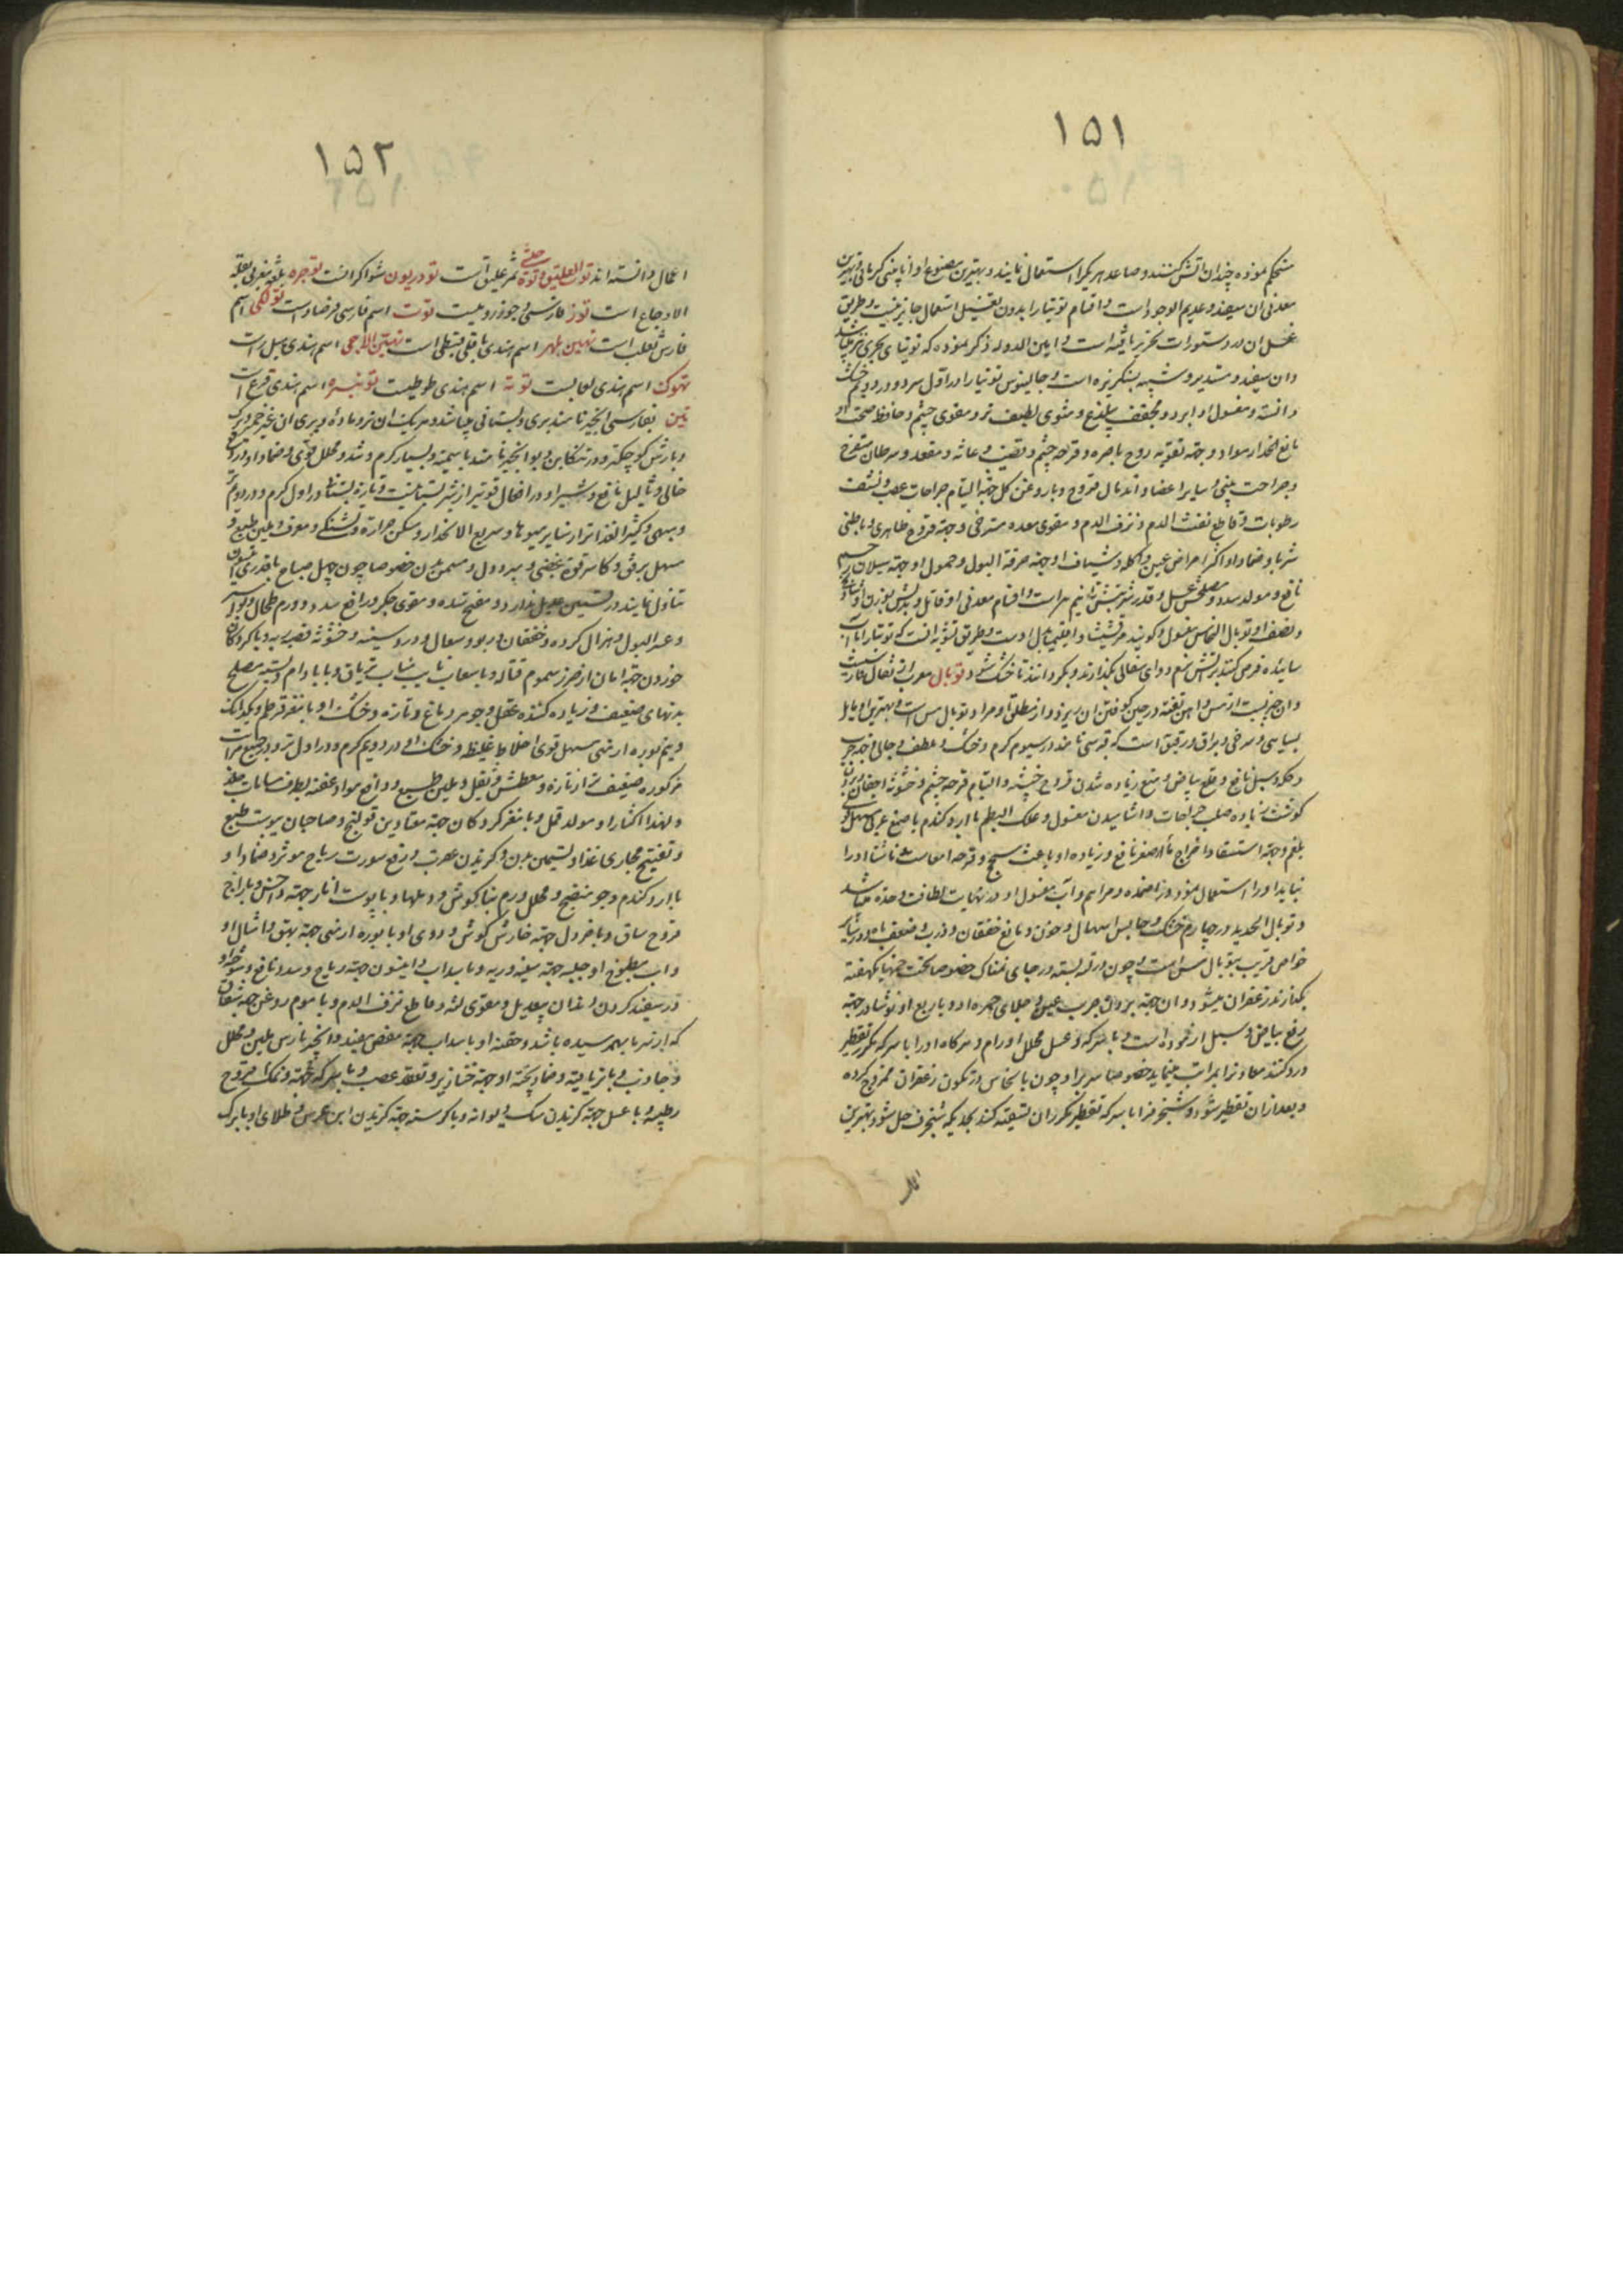 ۱۵۱
مستحکم نموده چندان آتش کنند و صاعد هر یکرا استعمال نمایند و بهترین مصنوع او
معدنی ان سفید و عدیم الوجود است و اقسام توتیا را بدون تغسیل استعمال جایز نیست و طریق
غسل ان در دستورات تحریر یافته است و امین الدوله ذکر نموده که توتیای بحری نیز میباشد
وان سفید و مستدیر و شبیه بسنگریزه است و جالینوس توتیا را در اول سرد و در دویم خشک
دانسته و مغسول او ابرد و مجفف بیلذع و مقوی چشم و حافظ صحت او
مانع انحدار مواد و جهة تقویه روح باصره و قرحه چشم و قضیب و عانه و مقعد و سرطان متقرح
و جراحت بینی و سایر اعضا و اندمال قروح و با روغن کل جهة التیام جراحات عصب و نشف
رطوبات و قاطع نفث الدم و نزف الدم و مقوی معده مسترخی و جهة قروح ظاهری و باطنی
شربا و ضمادا و اکثر امراض عین و اکله و شیاف او جهة حرقة البول و حمول او جهة سیلان رحم
نافع و مولد سدد و مصلحش عسل و قدر شربتش تا نیم درم است و اقسام معدنی او قاتل و بدلش بوزن او
و نصف او توبال النحاس مغسول و کویند مرقشیشا و اقلیمیا بدل اوست و طریق تشویه انست که توتیا را با اب
سائیده قرص کنند بر آتش نرم در وای سفالی بکذارند و بکردانند تا خشک شود توبال معرب از تفال فارسیست
وان چیزیست از مس و اهن تفته در حین کوفتن ان بریزد و از مطلق او مراد توبال مس است و بهترین او مایل
بسیاهی و سرخی و براق و رقیق است که قبرسی نامند در سیوم کرم و خشک و ملطف و جالی و جهة جرب
و حکه و سبل نافع و قلع بیاض و منع زیاده شدن قروح خبیثه و التیام قرحه چشم و خشونة اجفان
کوشت زیاده صلب جراحات و اشامیدن مغسول و علک البطم با ارد کندم یا صمغ عربی مسهل قوی
بلغم و جهة استسقا و اخراج ماء اصفر نافع و زیاده او باعث سحج و قرحه امعاست و ناشتا او را
نباید او را استعمال نمود و در اضمده و مراهم و آب مغسول او در نهایت لطافت و حدة میباشد
و توبال الحدید در چهارم خشک و حابس اسهال و خون و نافع خفقان و ذرب و ضعف باه و در سایر
خواص قریب بتوبال مس است و چون در لته بسته در جای نمناک خصوصا تحت خمها یکهفته
بکذارند زعفران میشود و ان جهة بردن جرب عین و جلای چهره او و با ربع او نوشادر جهة
رفع بیاض و سبل ازموده است و با سرکه و عسل محلل اورام و هرکاه او را با سرکه مکرر تقطیر
در دکنند معاونرا ابدراب مینماید خصوصا سر براو چون با نحاس در تکون زعفران ممزوج کرده
و بعد از ان تقطیر شود و شنجرف را با سرکه تقطیر مکرر ان تسقیه کنند بحدیکه شنجرف حل شود بهترین
۱۵۲
اعمال دانسته اند توت العلیق و توة ثمر علیق است تودریون شوکران است توجره بلغة مغربی بقلة
الاوجاع است توز فارسی و جوز رومیست توت اسم فارسی فرصاد است تولکی اسم
فارسی ثعلب است تهین مهر اسم هندی باقلی قبطی است تهتین الاجمی اسم هندی بسل است
تهوک اسم هندی لعابست توته اسم هندی طوطیست تونبره اسم هندی قرع است
تین بفارسی انجیر نامند بری و بستانی میباشد و هر یک ان نر و ماده و بری ان غیر خمر
و بارش کوچکتر و در تنکابن دیو انجیر نامند با سمیته و بسیار کرم و تند و محلل قوی و ضماد او در
خالی و ثالیل نافع و شیر او در افعال قویتر از شیر بستانیست و تازه بستانی در اول کرم و در دویم تر
و بهی و کثیر الغذاتر از سایر میوها و سریع الانحدار و مسکن حرارة و تشنکی و معرق و ملین طبع و
مسهل برفق و کاسر قوة غضبی و مبرد دل و مسمن بدن خصوصا چون چهل صباح با قدری انیسون
تناول نمایند در تسمین عدیل ندارد و مفتح سده و مقوی جکر و رافع سدد و ورم طحال و بواسیر
و عسر البول و هزال کرده و خفقان و ربو و سعال و درد سینه و خشونة قصبه ریه و با کردکان
خوردن جهة امان از ضرر سموم قتاله و با سداب نایب مناب تریاق و با بادام و پسته مصلح
بدنهای ضعیف و زیاده کننده عقل و جوهر دماغ و تازه و خشک او با مغز قرطم و یکدانک
و نیم بوره ارمنی مسهل قوی اخلاط غلیظ و خشک او در دویم کرم و در اول تر و در جمیع مراتب
مذکوره ضعیف تر از تازه و معطش و ثقیل و ملین طبیع و دافع مواد عفنه بطرف مسامات جلد
و لهذا اکثار او مولد قمل و با مغز کردکان جهة معتادین قولنج و صاحبان یبوست طبع
و تفتیح مجاری غذا و تسمین بدن و کزیدن عقرب و رفع سورت ریاح موثر و ضماد او
با ارد کندم و جو منضج و محلل ورم بناکوش و دملها و با پوست انار جهة داحس و با زاج
قروح ساق و با خردل جهة خارش کوش و دوی او با بوره ارمنی جهة بهق و امثال او
و اب مطبوخ او حلبه جهة سینه و ریه و با سداب و انیسون جهة ریاح و سدد نافع و
در سفید کردن دندان بیعدیل و مقوی لثه و قاطع نزف الدم و با موم روغن جهة شقاق
که از سرما بهم رسیده باشد و حقنه او با سداب جهة مغص مفید و انجیر نارس ملین و محلل
و جاذب و با تریاقیة و ضماد پخته او جهة خنازیر و تعقد عصب و با سرکه جهة و نمک قروح
رطبه و با عسل جهة کزیدن سک دیوانه و با کرسنه جهة کزیدن ابن عرس و طلای او با برک